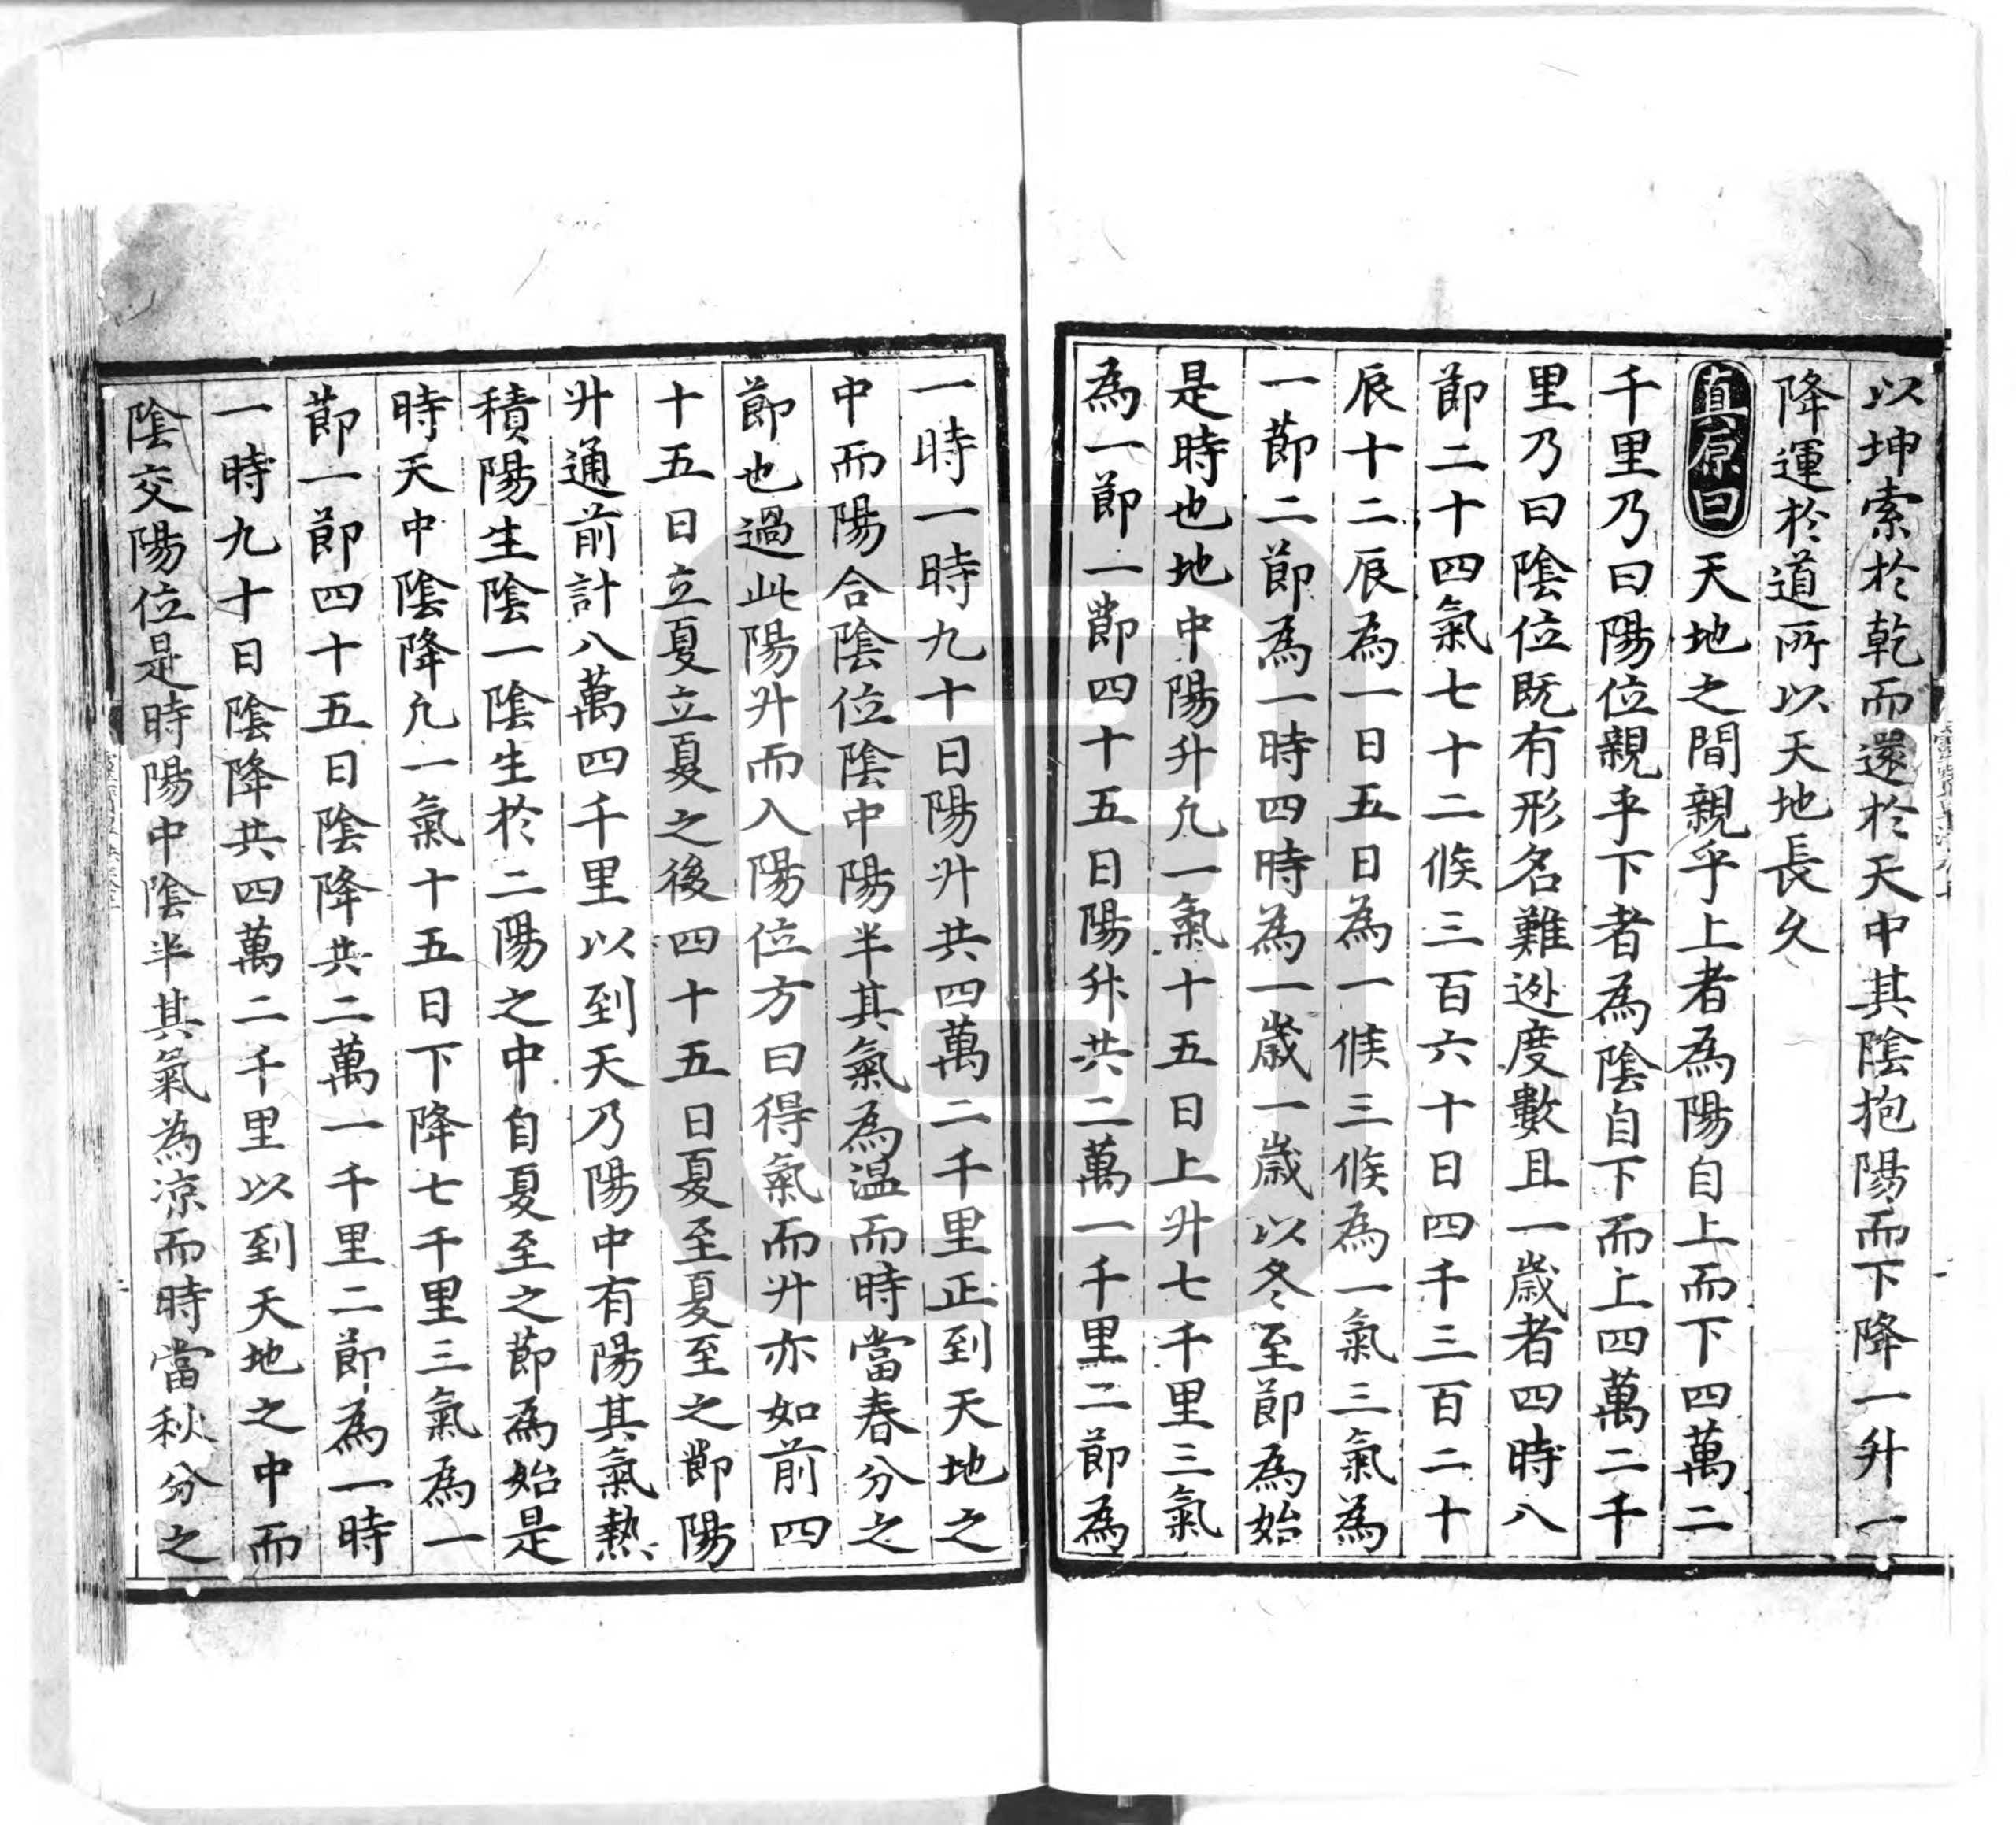 以坤索於乾而還於天中其陰抱陽而下降一升一
降運於道所以天地長久
真原曰天地之間親乎上者為陽自上而下四萬二
千里乃曰陽位親乎下者為陰自下而上四萬二千
里乃曰陰位既有形名難逃度數且一歲者四時八
節二十四氣七十二候三百六十日四千三百二十
辰十二辰為一日五日為一候三候為一氣三氣為
一節二節為一時四時為一歲一歲以冬至節為始
是時也地中陽升凢一氣十五日上升七千里三氣
為一節一節四十五日陽升共二萬一千里二節為
一時一時九十日陽升共四萬二千里正到天地之
中而陽合陰位陰中陽半其氣為温而時當春分之
節也過此陽升而入陽位方曰得氣而升亦如前四
十五日立夏立夏之後四十五日夏至夏至之節陽
升通前計八萬四千里以到天乃陽中有陽其氣熱
積陽生陰一陰生於二陽之中自夏至之節為始是
時天中陰降凢一氣十五日下降七千里三氣為一
節一節四十五日陰降共二萬一千里二節為一時
一時九十日陰降共四萬二千里以到天地之中而
陰交陽位是時陽中陰半其氣為凉而時當秋分之